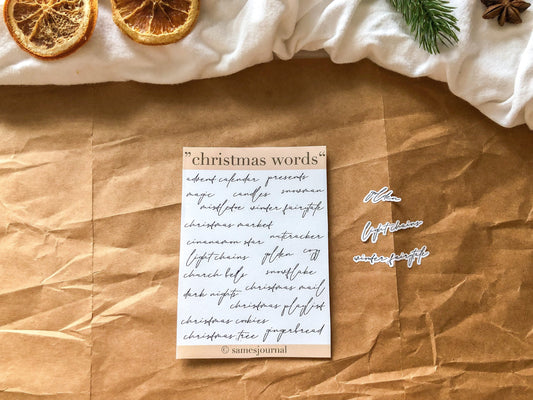 ”christmas words“
advent calender presents
magic candles snowman
mistletoe winter fairytale
christmas market
cinanamon star nutcracker
light chains golden cozy
church bels snowflake
dark nights christmas mail
christmas playlist
christmas cookies
christmas tree gingerbread
© samesjournal
light chains
winter fairytale